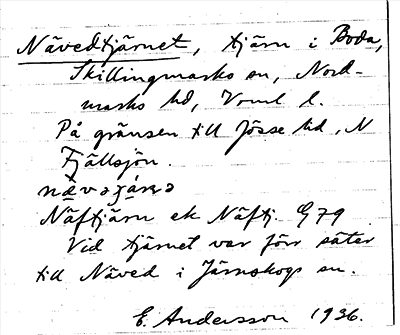 Nävedtjärnet, tjärn i Boda,
Skillingmarks sn, Nord-
marks hd, Vrml l.
På gränsen till Jösse hd, N
Fjällsjön.
Näftjärn ek Näftj. G79
Vid tjärnet var förr säter
till Näved i Järnskogs sn.
E. Andersson 1936.